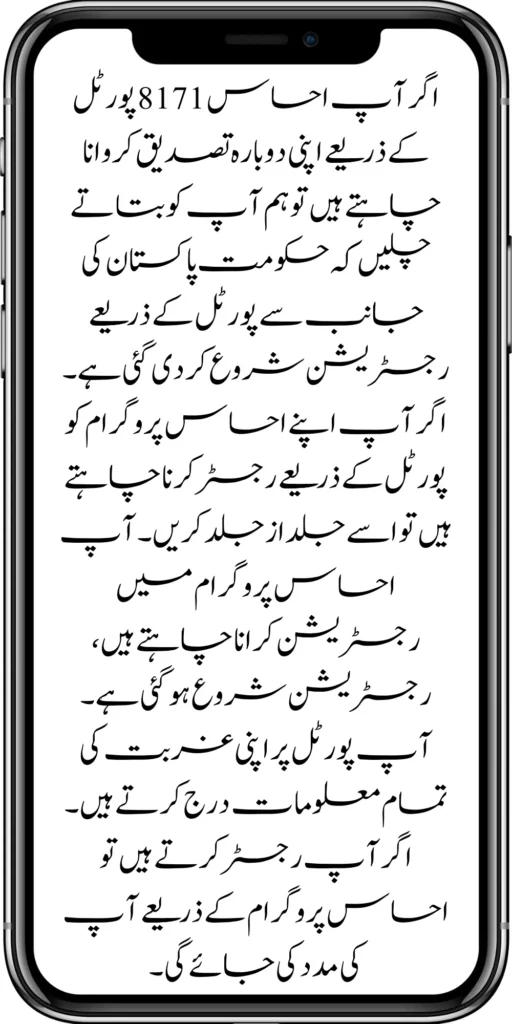 اگر آپ احساس 8171 پورٹل
کے ذریعے اپنی دوبارہ تصدیق کروانا
چاہتے ہیں تو ہم آپ کو بتاتے
چلیں کہ حکومت پاکستان کی
جانب سے پورٹل کے ذریعے
رجسٹریشن شروع کر دی گئی ہے۔
اگر آپ اپنے احساس پروگرام کو
پورٹل کے ذریعے رجسٹر کرنا چاہتے
ہیں تو اسے جلد از جلد کریں۔ آپ
احساس پروگرام میں
رجسٹریشن کرانا چاہتے ہیں،
رجسٹریشن شروع ہو گئی ہے۔
آپ پورٹل پر اپنی غربت کی
تمام معلومات درج کرتے ہیں۔
اگر آپ رجسٹر کرتے ہیں تو
احساس پروگرام کے ذریعے آپ
کی مدد کی جائے گی۔